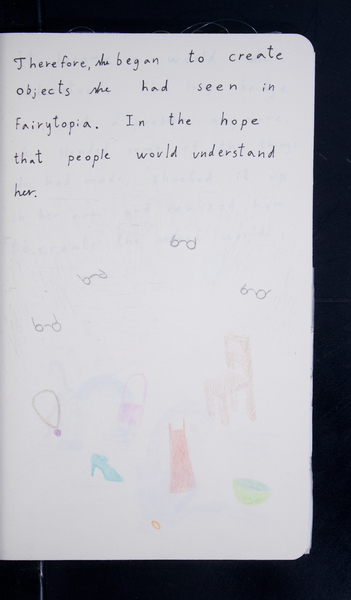 Therefore, she began to create
objects she had seen in
Fairytopia. In the hope
that people would understand
her.